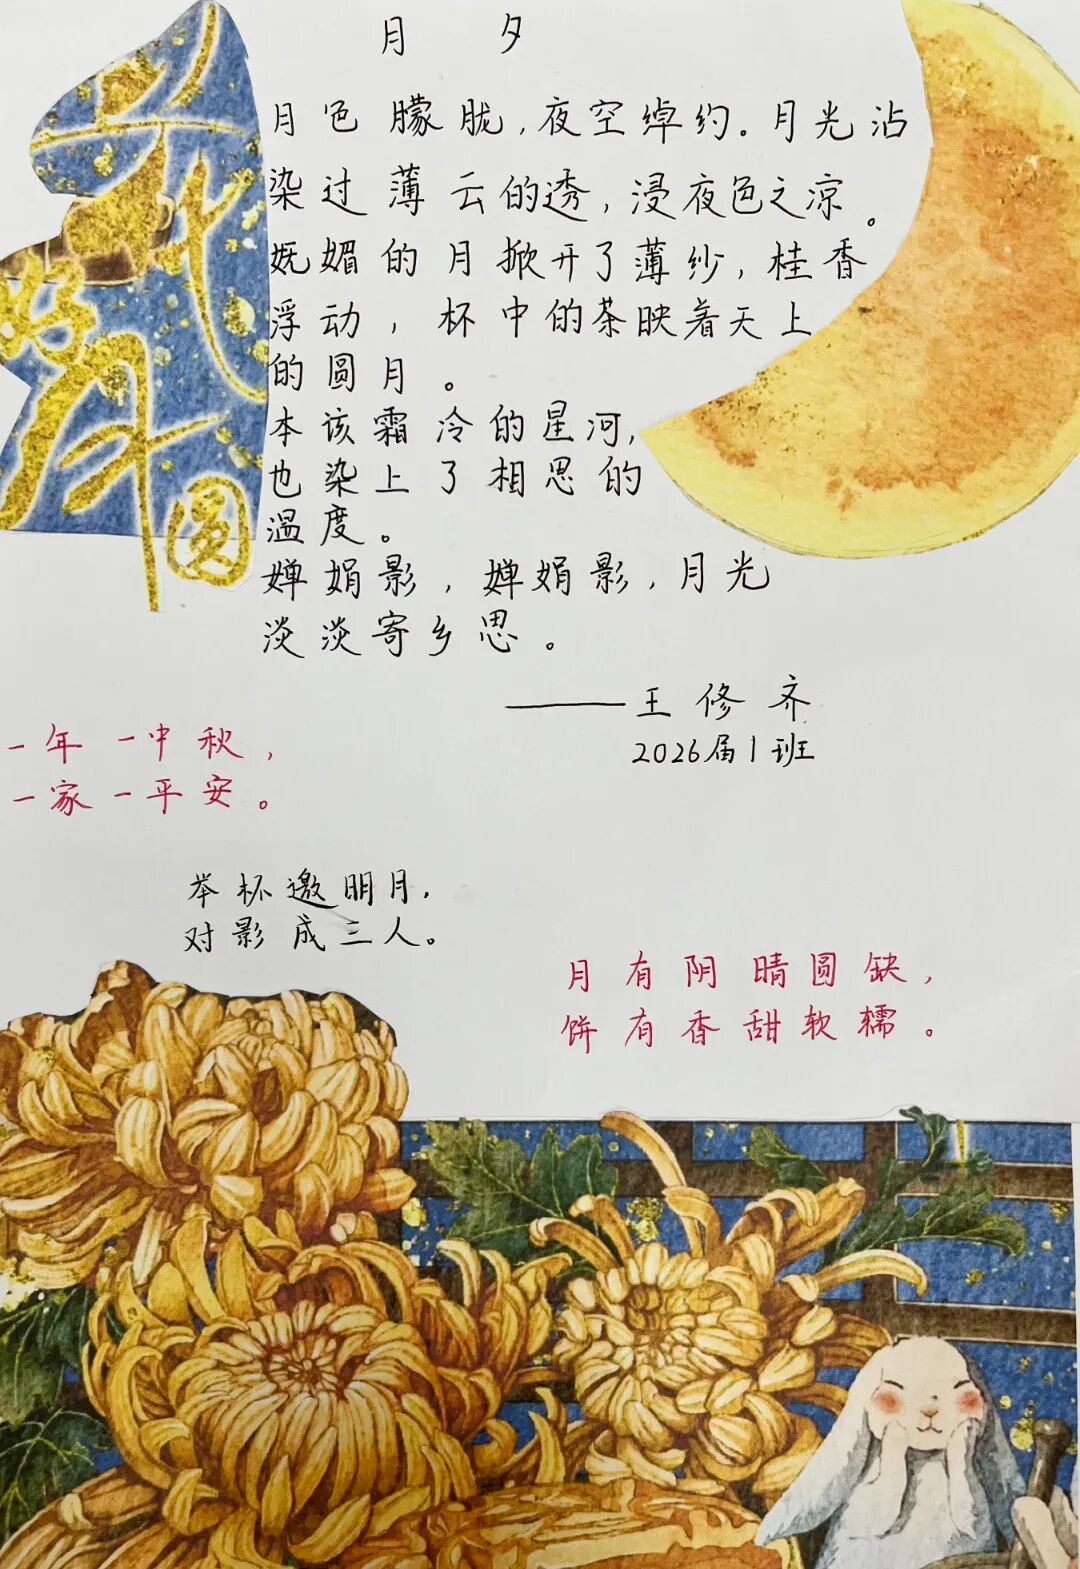 花好月圆
月 夕
月色朦胧,夜空绰约。月光沾
染过薄云的透,浸夜色之凉。
妩媚的月掀开了薄纱,桂香
浮动,杯中的茶映着天上
的圆月。
本该霜冷的星河,
也染上了相思的
温度。
婵娟影,婵娟影,月光
淡淡寄乡思。
——王修齐
2026届1班
一年一中秋,
一家一平安。
举杯邀明月,
对影成三人。
月有阴晴圆缺,
饼有香甜软糯。